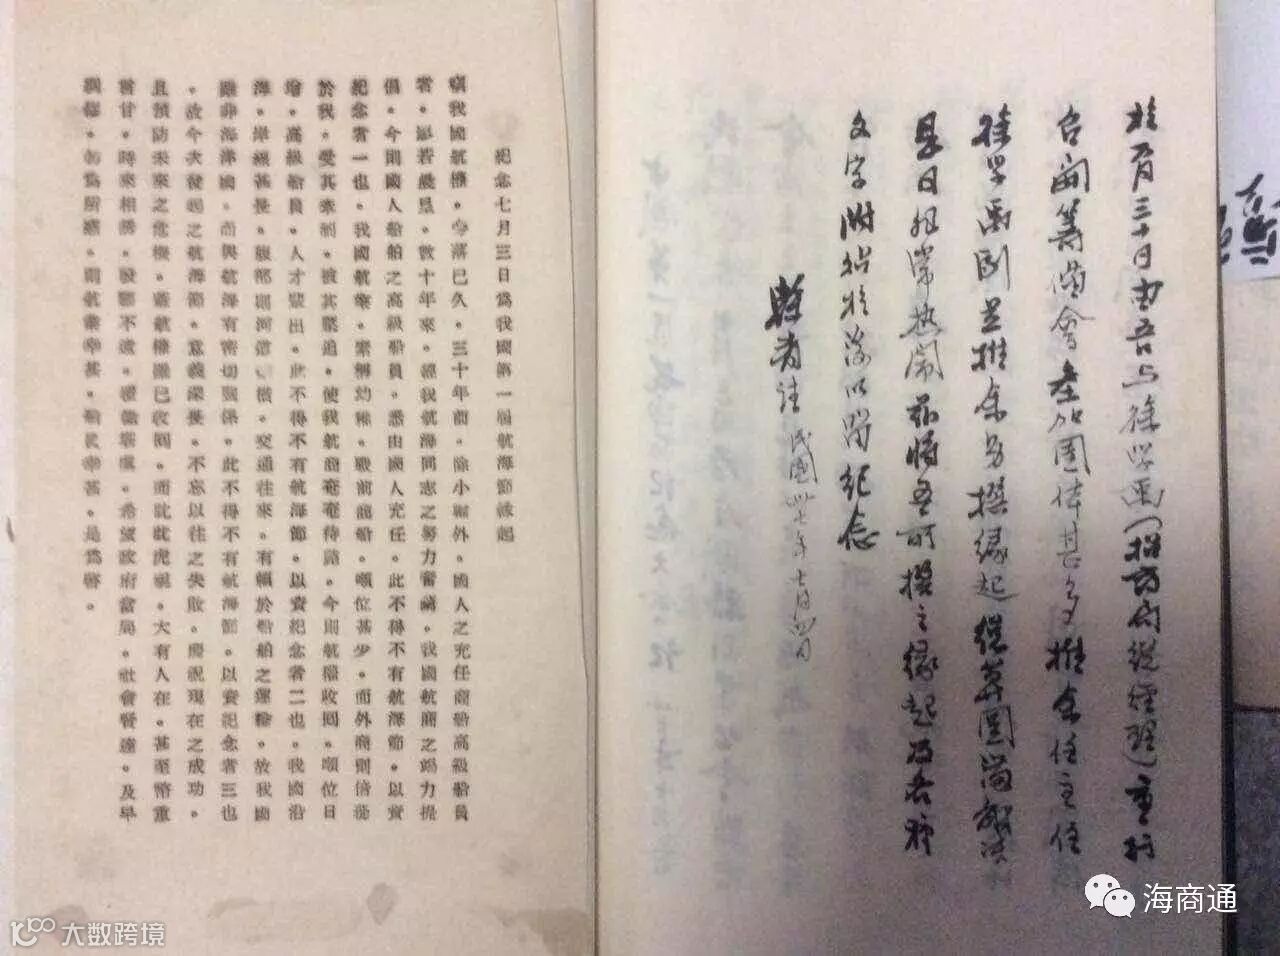 月三十日由吾与徐学禹(招商局總經理)重行
召開籌備會參加團体甚多推余任主任
徐学禹副並推余另撰緣起 圆满
是日非常热闹茲將吾所撰之緣起及各種
文字附粘於後以留紀念
者註 民國卅七年七月四日
紀念七月三日為我國第一屆航海節緣起
竊我國航權，旁落已久，三十年前，除小輪外，國人之充任商船高級船員
者，寥若晨星，數十年來，經我航海同志之努力奮鬭，我國航商之竭力提
倡，今則國人船舶之高級船員，悉由國人充任。此不得不有航海節，以資
紀念者一也。我國航業，素稱幼稚，戰前商船，噸位甚少，而外商則倍蓰
於我，受其牽制，被其壓迫，使我航商奄奄待斃，今則航權收回，噸位日
增，高級船員，人才輩出，此不得不有航海節，以資紀念者二也。我國沿
海，岸線甚長，腹部則河道縱橫，交通往來，有賴於船舶之運輸，故我國
雖非海洋國，而與航海有密切關係，此不得不有航海節，以資紀念者三也
。故今次發起之航海節，意義深長，不忘以往之失敗，慶祝現在之成功。
且預防未來之危機，蓋航權雖已收回，而眈眈虎視，大有人在，甚至幣重
言甘，時來相誘，不遂，覆轍堪虞。希望政府當局，社會賢達，及早
綢繆，勿為所惑，則航業幸甚，幸甚，是為啓。
海商通
大数跨境